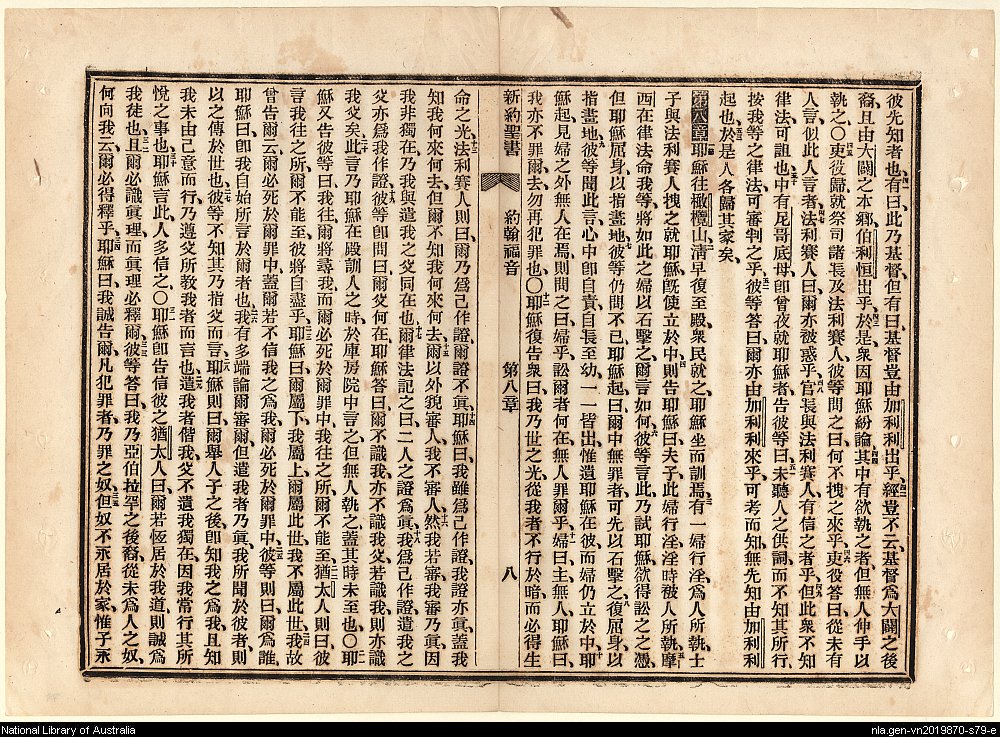 彼先知者也、有曰、此乃基督、但有曰、基督豈由加利利出乎、經豈不云、基督爲大闢之後
裔、且由大闢之本鄉伯利恒出乎、於是衆因耶穌紛論、其中有欲執之者、但無人伸手以
執之、〇吏役歸就祭司諸長及法利賽人、彼等問之曰、何不拽之來乎、吏役答曰、從未有
人言似此人言者、法利賽人曰、爾亦被惑乎、官長與法利賽人有信之者乎、但此衆不知
律法、可詛也、中有尼哥底母、卽曾夜就耶穌者、告彼等曰、未聽人之供詞、而不知其所行、
按我等之律法、可審判之乎、彼等答曰、爾亦由加利利來乎、可考而知、無先知由加利利
起也、於是人各歸其家矣、
第八章耶穌往橄欖山、淸早復至殿、衆民就之、耶穌坐而訓焉、有一婦行淫、爲人所執、士
子與法利賽人拽之就耶穌、旣使立於中、則告耶穌曰、夫子、此婦行淫、淫時被人所執、摩
西在律法命我等、將如此之婦以石擊之、爾言如何、彼等言此、乃試耶穌、欲得訟之之憑、
但耶穌屈身、以指畫地、彼等仍問不已、耶穌起曰、爾中無罪者、可先以石擊之、復屈身、以
指畫地、彼等聞此言、心中卽自責、自長至幼、一一皆出、惟遺耶穌在彼、而婦仍立於中、耶
穌起、見婦之外無人在焉、則問之曰、婦乎、訟爾者何在、無人罪爾乎、婦曰、主、無人、耶穌曰、
我亦不罪爾、去、勿再犯罪也、〇耶穌復告衆曰、我乃世之光、從我者不行於暗、而必得生
新約聖書　約翰福音　第八章　八
命之光、法利賽人則曰、爾乃爲己作證、爾證不眞、耶穌曰、我雖爲己作證、我證亦眞、蓋我
知我何來何去、但爾不知我何來何去、爾以外貌審人、我不審人、然我若審、我審乃眞、因
我非獨在、乃我與遣我之父同在也、爾律法記之曰、二人之證爲眞、我爲己作證、遣我之
父亦爲我作證、彼等卽問曰、爾父何在、耶穌答曰、爾不識我、亦不識我父、若識我、則亦識
我父矣、此言乃耶穌在殿訓人之時、於庫房院中言之、但無人執之、蓋其時未至也、〇耶
穌又告彼等曰、我往、爾將尋我、而爾必死於爾罪中、我往之所、爾不能至、猶太人則曰、彼
言我往之所、爾不能至、彼將自盡乎、耶穌曰、爾屬下、我屬上、爾屬此世、我不屬此世、我故
曾告爾云、爾必死於爾罪中、蓋爾若不信我之爲我、爾必死於爾罪中、彼等則曰、爾爲誰、
耶穌曰、卽我自始所言於爾者也、我有多端論爾審爾、但遣我者乃眞、我所聞於彼者、則
以之傳於世也、彼等不知其乃指父而言、耶穌則曰、爾舉人子之後、卽知我之爲我、且知
我未由己意而行、乃遵父所教我者而言也、遣我者偕我、父不遺我獨在、因我常行其所
悅之事也、耶穌言此、人多信之、〇耶穌卽告信彼之猶太人曰、爾若恆居於我道、則誠爲
我徒也、且爾必識眞理、而眞理必釋爾、彼等答曰、我乃亞伯拉罕之後裔、從未爲人之奴、
何向我云、爾必得釋乎、耶穌曰、我誠告爾、凡犯罪者、乃罪之奴、但奴不永居於家、惟子永
National Library of Australia
nla.gen-vn2019870-s79-e